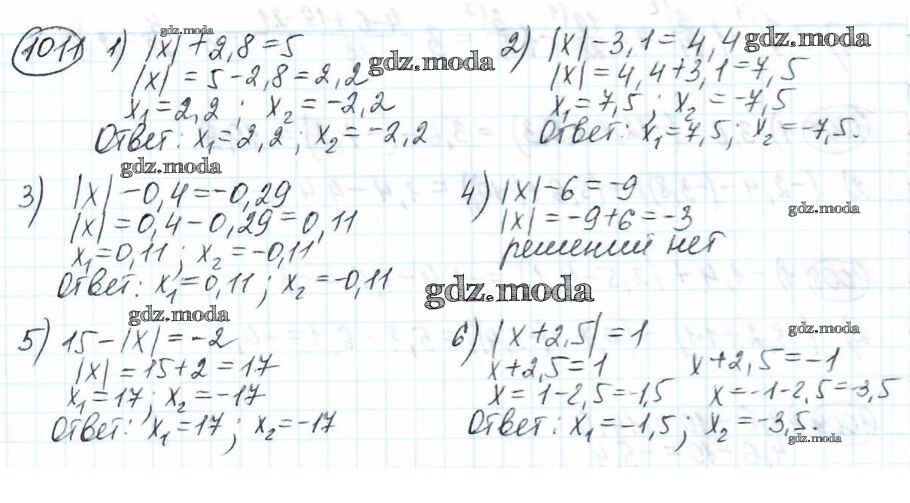 1011 1) |x| + 2,8 = 5
|x| = 5 - 2,8 = 2,2
x₁ = 2,2 ; x₂ = -2,2
Ответ: x₁ = 2,2 ; x₂ = -2,2
2) |x| - 3,1 = 4,4
|x| = 4,4 + 3,1 = 7,5
x₁ = 7,5 ; x₂ = -7,5
Ответ: x₁ = 7,5 ; x₂ = -7,5.
3) |x| - 0,4 = -0,29
|x| = 0,4 - 0,29 = 0,11
x₁ = 0,11 ; x₂ = -0,11
Ответ: x₁ = 0,11 ; x₂ = -0,11
4) |x| - 6 = -9
|x| = -9 + 6 = -3
решений нет
5) 15 - |x| = -2
|x| = 15 + 2 = 17
x₁ = 17 ; x₂ = -17
Ответ: x₁ = 17 ; x₂ = -17
6) |x + 2,5| = 1
x + 2,5 = 1 x + 2,5 = -1
x = 1 - 2,5 = -1,5 x = -1 - 2,5 = -3,5
Ответ: x₁ = -1,5 ; x₂ = -3,5.
gdz.moda
gdz.moda
gdz.moda
gdz.moda
gdz.moda
gdz.moda
gdz.moda
gdz.moda
gdz.moda